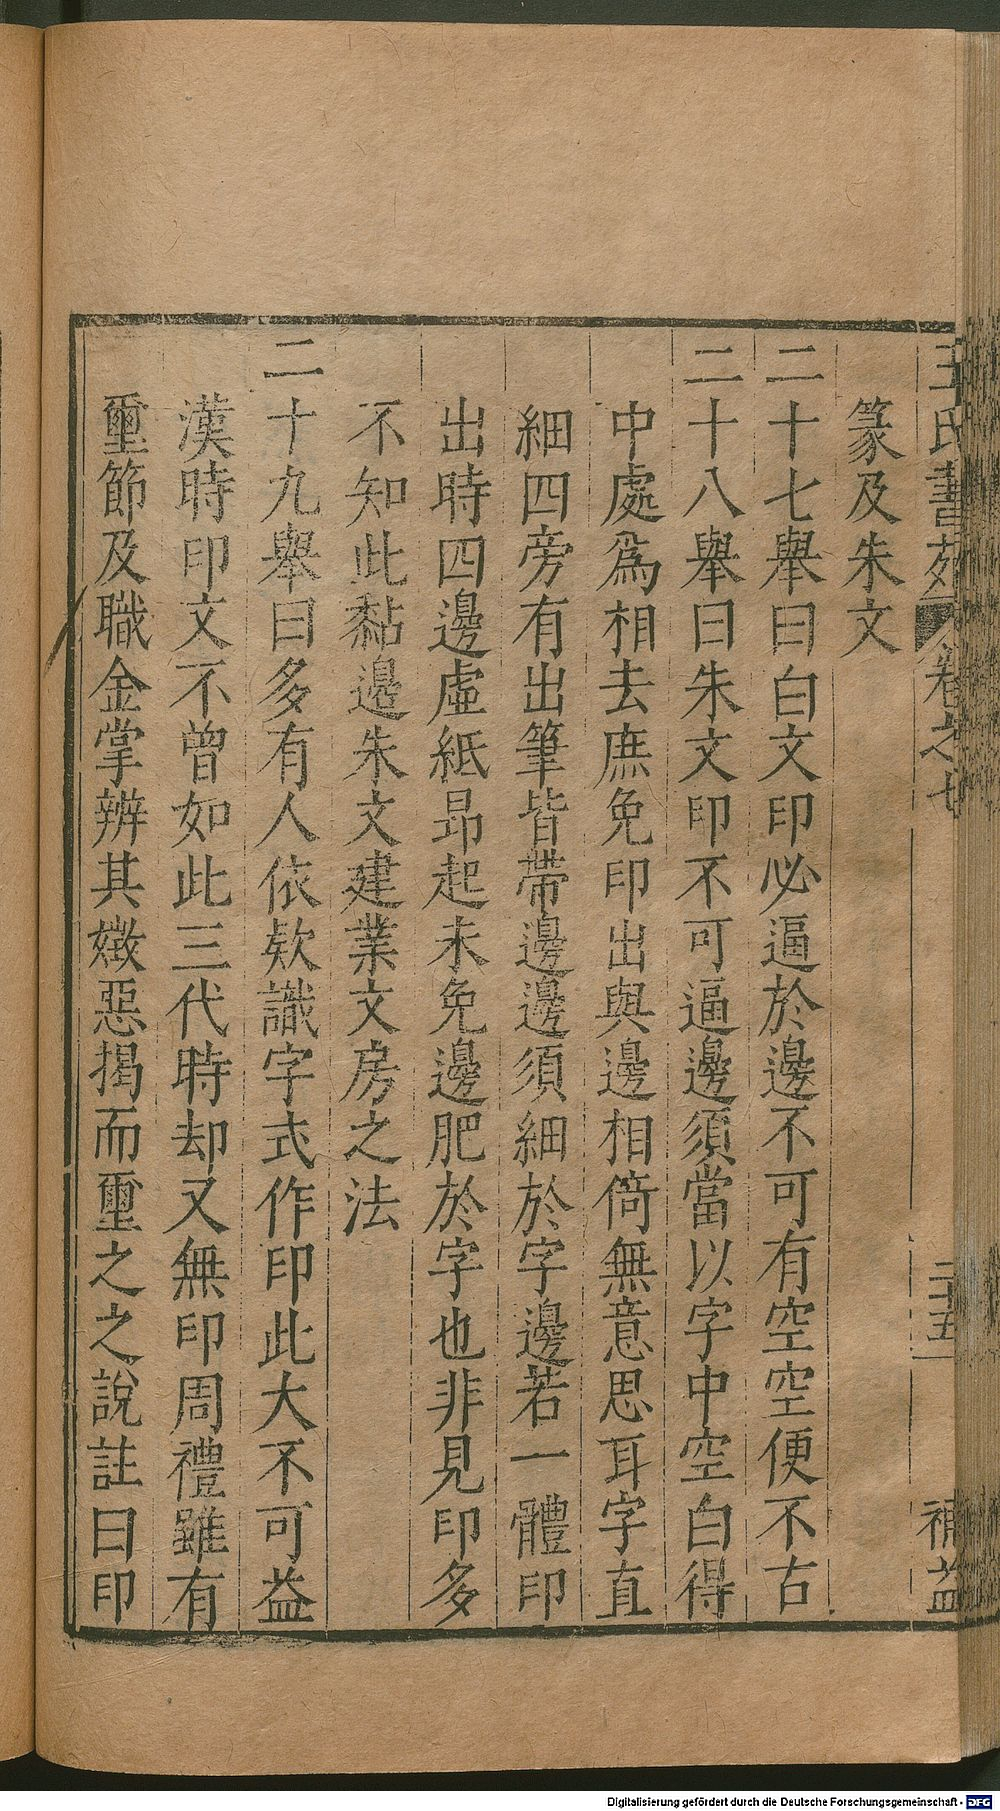 王氏書苑 卷之七 二十五 補益
篆及朱文
二十七舉曰白文印必逼於邊不可有空空便不古
二十八舉曰朱文印不可逼邊須當以字中空白得
中處爲相去庶免印出與邊相倚無意思耳字直
細四旁有出筆皆帶邊邊須細於字邊若一體印
出時四邊虛紙昂起未免邊肥於字也非見印多
不知此黏邊朱文建業文房之法
二十九舉曰多有人依欵識字式作印此大不可益
漢時印文不曾如此三代時却又無印周禮雖有
璽節及職金掌辨其媺惡揭而璽之之說註曰印
Digitalisierung gefördert durch die Deutsche Forschungsgemeinschaft - DFG